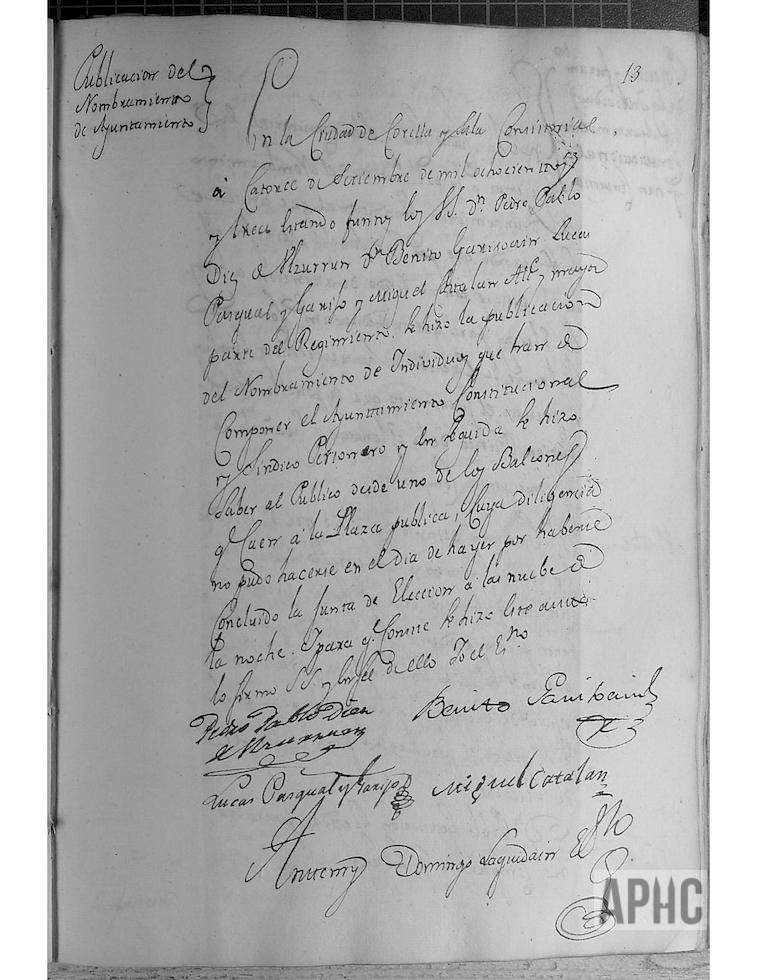 13
Publicacion del
Nombramiento
de Ayuntamiento
En la Ciudad de Corella y Sala Consistorial,
á Catorce de Setiembre de mil ochocientos
y trece estando juntos los SS. Dn. Pedro Pablo
Diez de Ulzurrun Dn Benito Garisoain Lucas
Pasqual y Garijo y Miguel Catalan Alc. y mayor
parte del Regimiento se hizo la publicacion
del Nombramiento de Individuos que han de
Componer el Ayuntamiento Constitucional
y Sindico Personero y en seguida se hizo
saber al Publico desde uno de los Balcones
q Caen a la Plaza publica, Cuya diligencia
no pudo hacerse en el dia de hayer por haberse
Concluido la Junta de Eleccion a las nuebe de
la noche. Ypara q. Conste se hizo este auto
lo firmo SS y en fe de ello Yo el Esno
Pedro Pablo Diez
de Ulzurrun
Benito Garisoain
Lucas Pasqual y Garijo
Miguel Catalan
Antemy Domingo Laquidain Esno
APHC